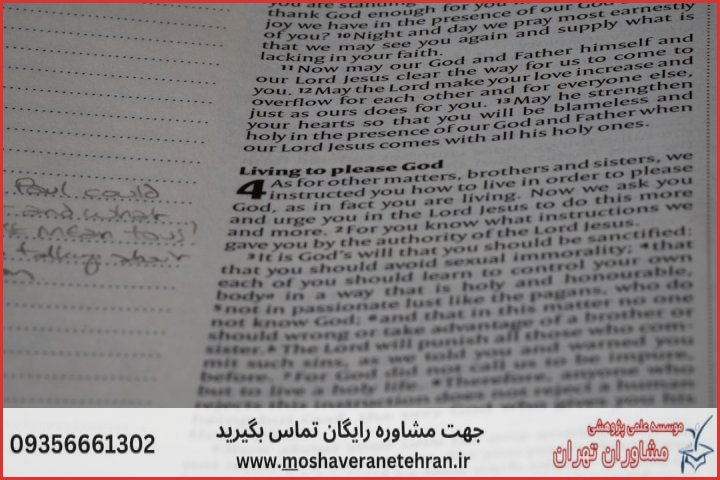 you are standing
thank God enough for you
joy we have in the presence of our God
of you? 10 Night and day we pray most earnestly
that we may see you again and supply what is
lacking in your faith.
11 Now may our God and Father himself and
our Lord Jesus clear the way for us to come to
you. 12 May the Lord make your love increase and
overflow for each other and for everyone else,
just as ours does for you. 13 May he strengthen
your hearts so that you will be blameless and
holy in the presence of our God and Father when
our Lord Jesus comes with all his holy ones.
Living to please God
4 As for other matters, brothers and sisters, we
instructed you how to live in order to please
God, as in fact you are living. Now we ask you
and urge you in the Lord Jesus to do this more
and more. 2 For you know what instructions we
gave you by the authority of the Lord Jesus.
3 It is God's will that you should be sanctified:
that you should avoid sexual immorality; 4 that
each of you should learn to control your own
body a in a way that is holy and honourable,
5 not in passionate lust like the pagans, who do
not know God; 6 and that in this matter no one
should wrong or take advantage of a brother or
sister. b The Lord will punish all those who com-
mit such sins, as we told you and warned you
before. 7 For God did not call us to be impure,
but to live a holy life. 8 Therefore, anyone who
rejects this instruction does not reject a human
Paul could
and what
mean to us?
talking about
جهت مشاوره رایگان تماس بگیرید
09356661302
www.moshaveranetehran.ir
موسسه علمی پژوهشی
مشاوران تهران